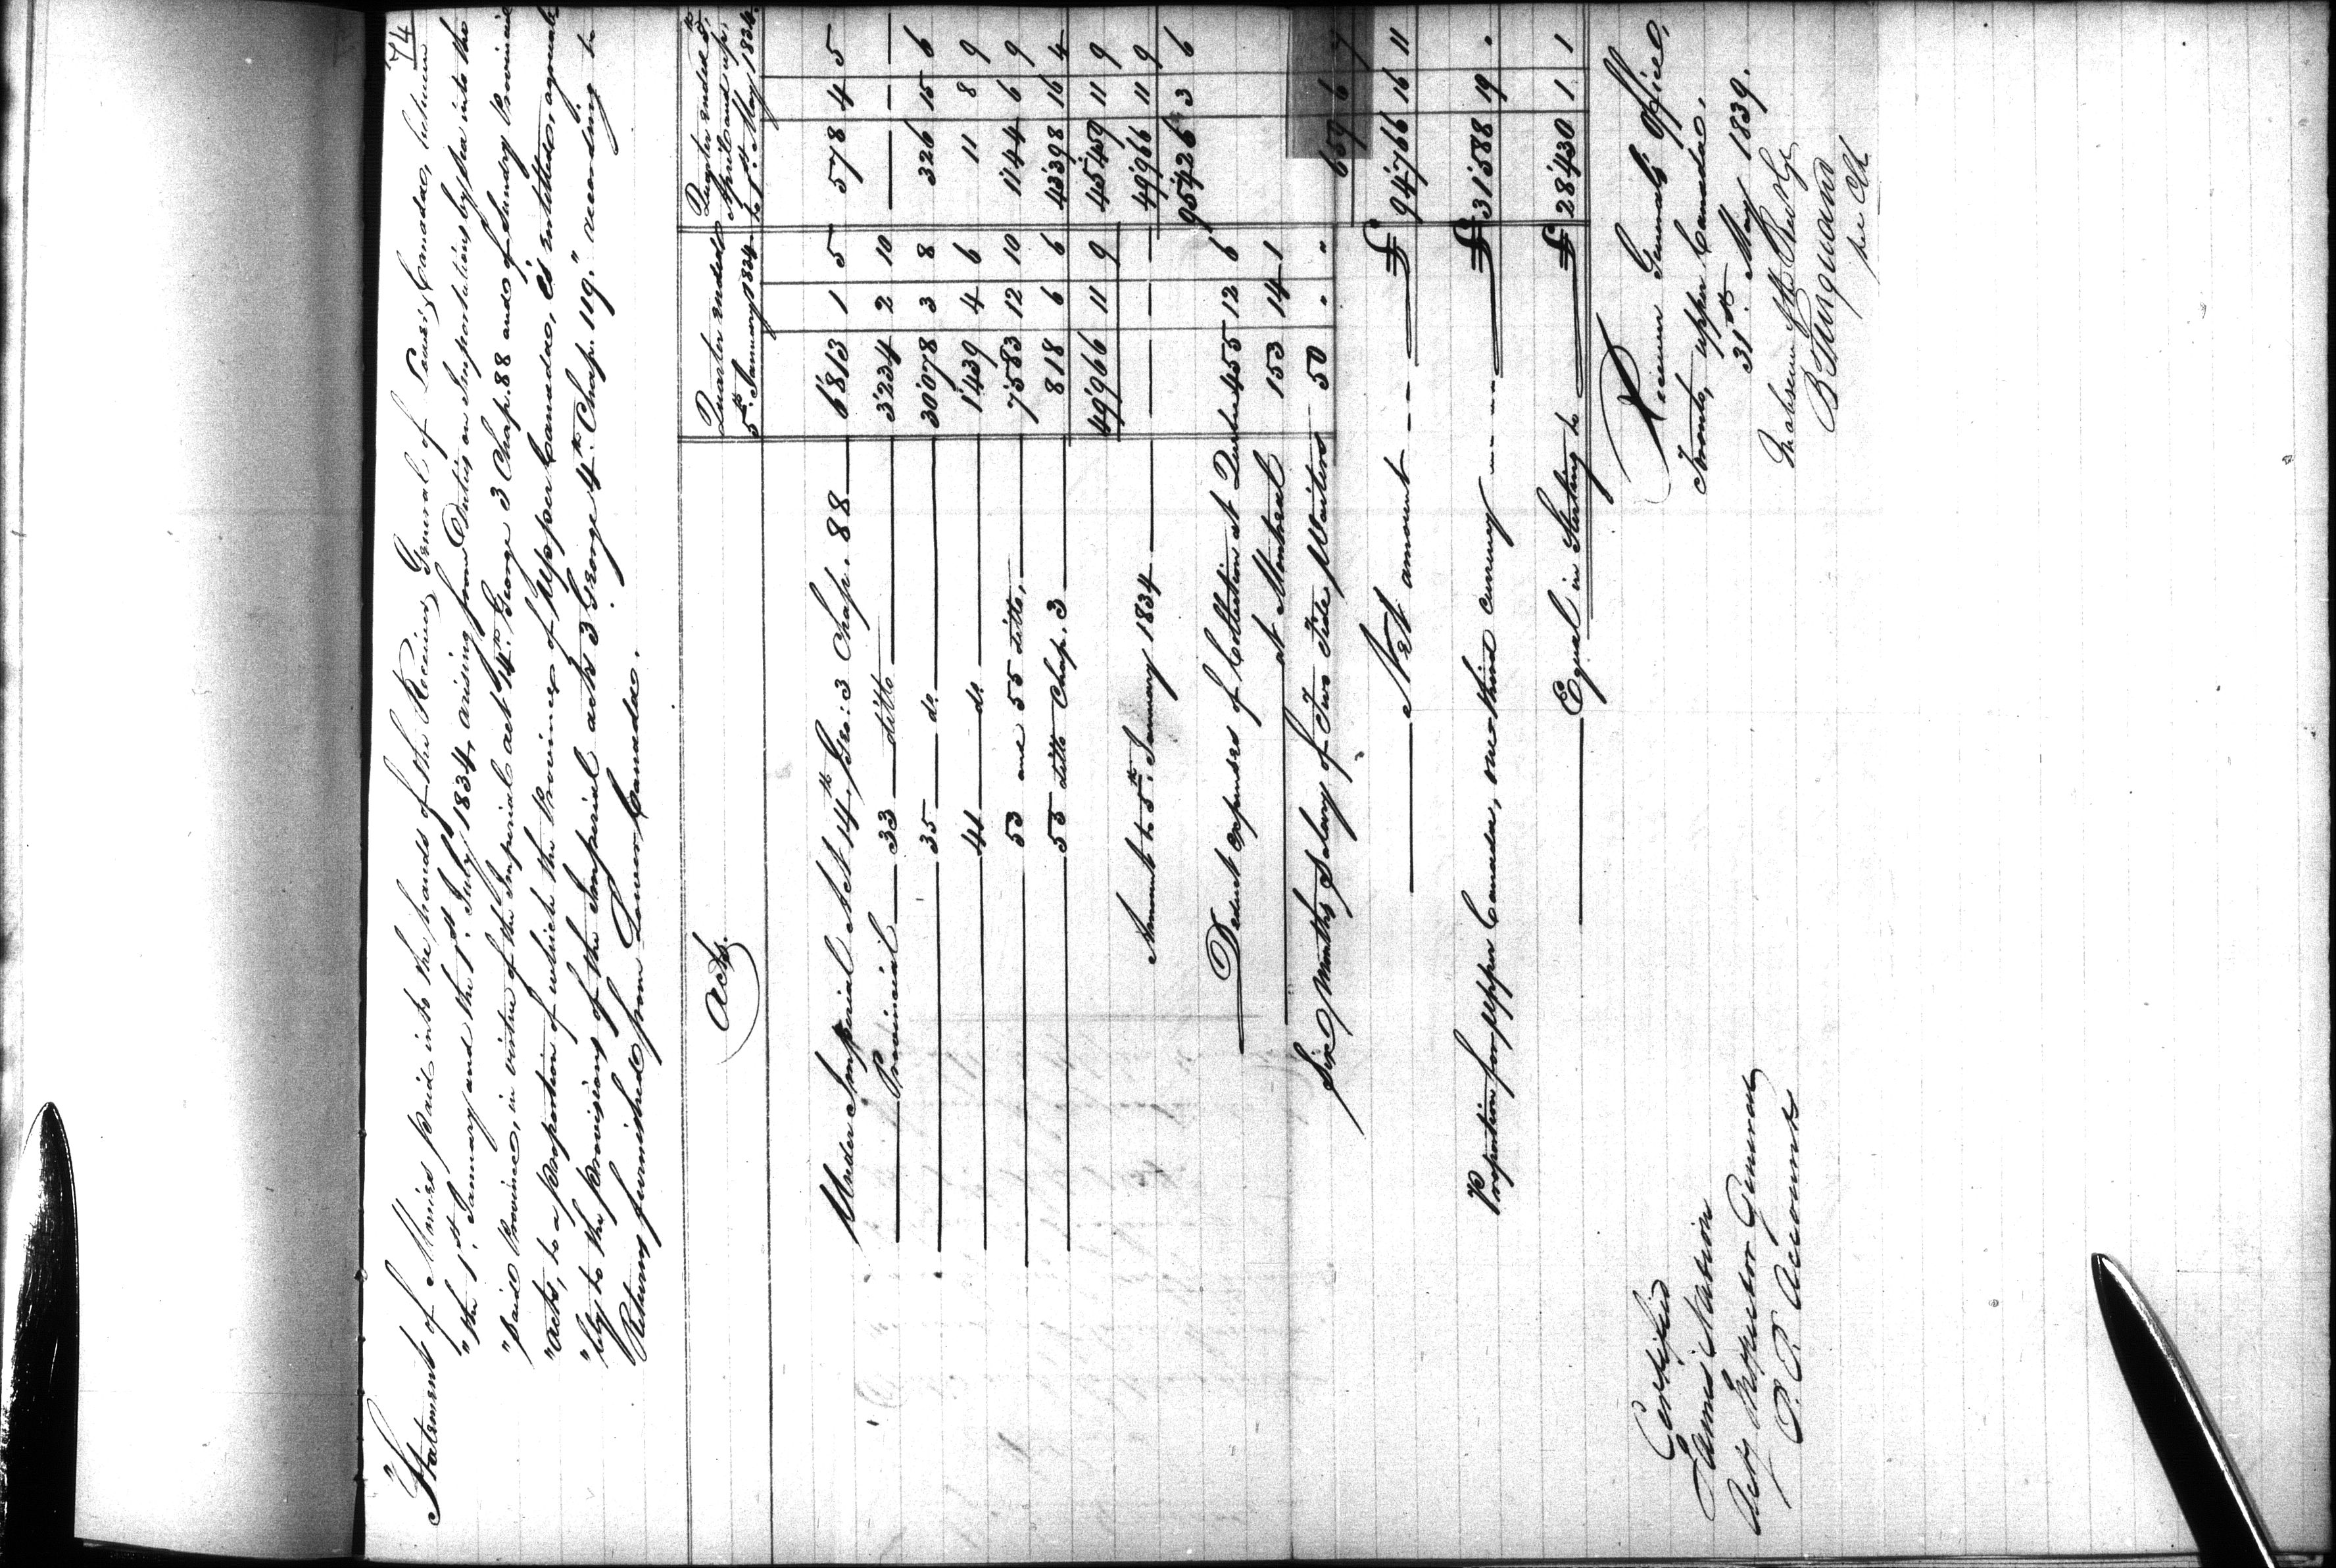 74
"Statement of Monies paid into the hands of the Receiver General of Lower Canada, between
"the 1st January and the 1st July 1834, arising from Duties on Importations by sea into the
"said Province, in virtue of the Imperial act 14th George 3 Chap. 88 and of Sundry Provincial
"acts, to a proportion of which the Province of Upper Canada, is entitled, agreeab
"ly to the provisions of the Imperial act 3 George 4th Chap. 119." according to
Returns furnished from Lower Canada.
Acts. Quarter ended 5th January 1834 Quarter ended 5th April and up to 1st May 1834.
Under Imperial Act 14th Geo: 3 Chap. 88 6'813 1 5 578 4 5
Provincial 33 ditto 3'234 2 10 — — —
35 do. 30'078 3 8 326 15 6
41 do. 1'439 4 6 11 8 9
53 and 55 ditto, 7'583 12 10 1'144 6 9
55 ditto Chap. 3 818 6 6 43'398 16 4
49'966 11 9 45'459 11 9
Amount to 5th January 1834 — — — 49'966 11 9
95'426 3 6
Deduct expenses of Collection at Quebec 455 12 6
at Montreal 153 14 1
Six Months Salary of Two Tide Waiters 50 " " 659 6 7
Net amount £ 94'766 16 11
Proportion for Upper Canada, one third currency £ 31'588 19 "
Equal in Sterling to £ 28'430 1 1
Receiver General's Office,
Toronto, Upper Canada,
31st May 1839.
In absence of the Rec. Gl.
B Turquand
per Clk
Certified
Acty Inspector General
P. P. Accounts